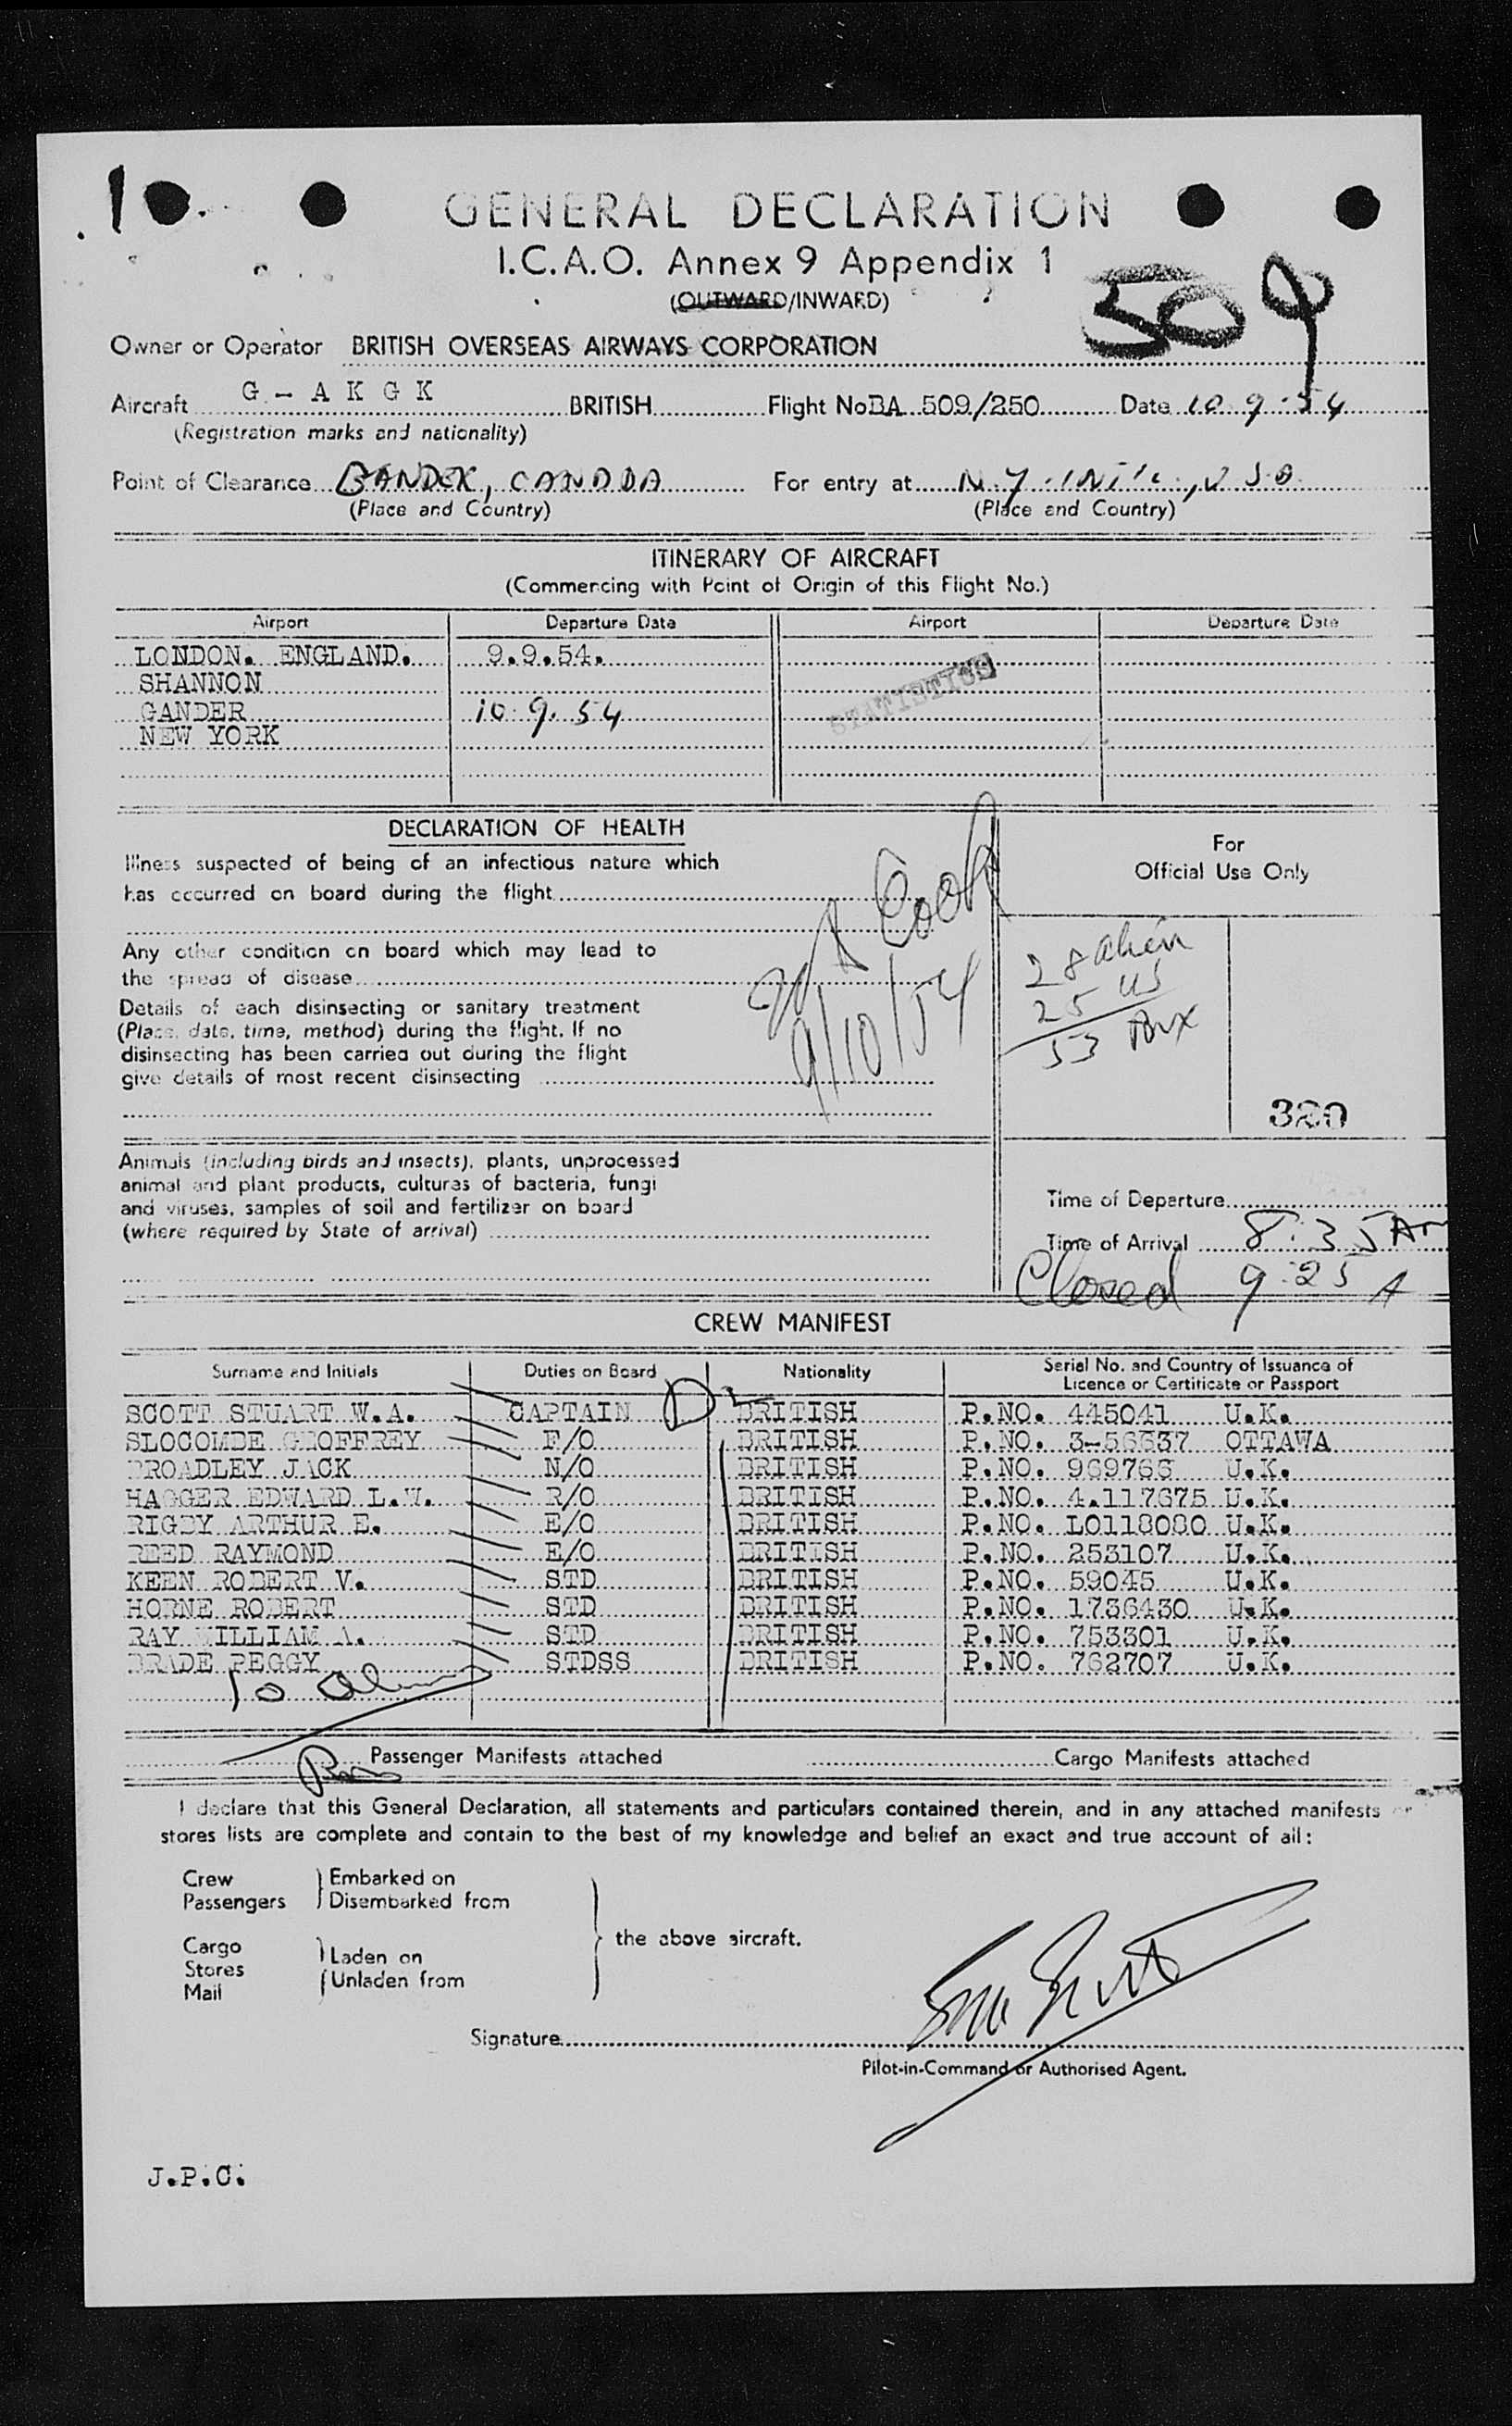 10.
GENERAL DECLARATION
I.C.A.O. Annex 9 Appendix 1
(OUTWARD/INWARD)
509
Owner or Operator BRITISH OVERSEAS AIRWAYS CORPORATION
Aircraft G - A K G K BRITISH Flight No BA 509/250 Date 10 . 9 . 54
(Registration marks and nationality)
Point of Clearance GANDER, CANADA For entry at N.Y. INTL., USA
(Place and Country) (Place and Country)
ITINERARY OF AIRCRAFT
(Commencing with Point of Origin of this Flight No.)
Airport Departure Date Airport Departure Date
LONDON. ENGLAND. 9.9.54.
SHANNON
GANDER 10. 9. 54
NEW YORK
STATISTICS
DECLARATION OF HEALTH
Illness suspected of being of an infectious nature which
has occurred on board during the flight
Any other condition on board which may lead to
the spread of disease
Details of each disinsecting or sanitary treatment
(Place, date, time, method) during the flight. If no
disinsecting has been carried out during the flight
give details of most recent disinsecting
Cook
9/10/54
For
Official Use Only
28 alien
25 US
53 Pax
320
Animals (including birds and insects), plants, unprocessed
animal and plant products, cultures of bacteria, fungi
and viruses, samples of soil and fertilizer on board
(where required by State of arrival)
Time of Departure
Time of Arrival 8:35 AM
Closed 9:25 A
CREW MANIFEST
Surname and Initials Duties on Board Nationality Serial No. and Country of Issuance of
Licence or Certificate or Passport
SCOTT STUART W.A. CAPTAIN BRITISH P.NO. 445041 U.K.
SLOCOMBE GEOFFREY F/O BRITISH P.NO. 3-56637 OTTAWA
BROADLEY JACK N/O BRITISH P.NO. 969766 U.K.
HAGGER EDWARD L.W. R/O BRITISH P.NO. 4.117675 U.K.
RIGBY ARTHUR E. E/O BRITISH P.NO. L0118080 U.K.
REED RAYMOND E/O BRITISH P.NO. 253107 U.K.
KEEN ROBERT V. STD BRITISH P.NO. 59045 U.K.
HORNE ROBERT STD BRITISH P.NO. 1736430 U.K.
RAY WILLIAM A. STD BRITISH P.NO. 753301 U.K.
BRADE PEGGY STDSS BRITISH P.NO. 762707 U.K.
10
Passenger Manifests attached Cargo Manifests attached
I declare that this General Declaration, all statements and particulars contained therein, and in any attached manifests or
stores lists are complete and contain to the best of my knowledge and belief an exact and true account of all:
Crew Embarked on
Passengers Disembarked from
the above aircraft.
Cargo Laden on
Stores Unladen from
Mail
Signature
Pilot-in-Command or Authorised Agent.
J.P.C.